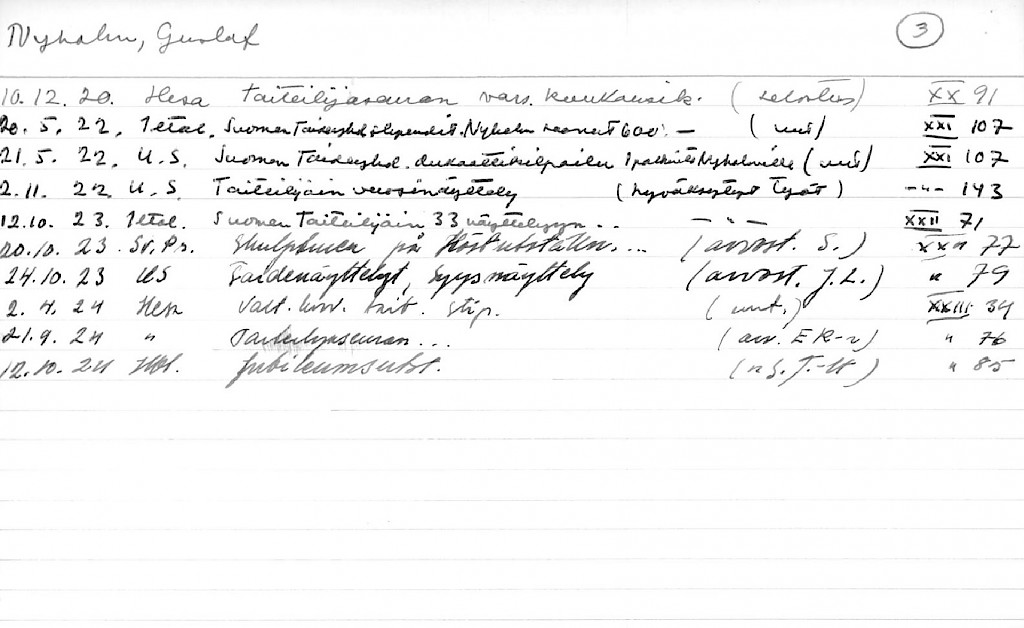 Nyholm, Gustaf 3
10.12.20. Hesa Taiteilijaseuran vars. kuukausik. (selostus) XX 91
20.5.22. Iltal. Suomen Taideyhd. stipendit. Nyholm saanut 600:— (uut) XXI 107
21.5.22. U.S. Suomen Taideyhd. dukaattikilpailu I palkinto Nyholmille (uut) XXI 107
2.11.22. U.S Taiteilijain vuosinäyttely (hyväksytyt työt) -"- 143
12.10.23. Iltal. Suomen Taiteilijain 33 näyttelyyn .. —"— XXII 71
20.10.23 Sv.Pr. Skulpturen på Höstutställn.... (arvost. S.) XXII 77
24.10.23 US Taidenäyttelyt, Syysnäyttely (arvost. J.L.) " 79
2.4.24 Hesa Valt. stip. (uut.) XXIII 34
21.9.24 " Taiteilijaseuran... (arv. E R-r) " 76
12.10.24 Hbl. Jubileumsutst. (S. T-tt) " 85